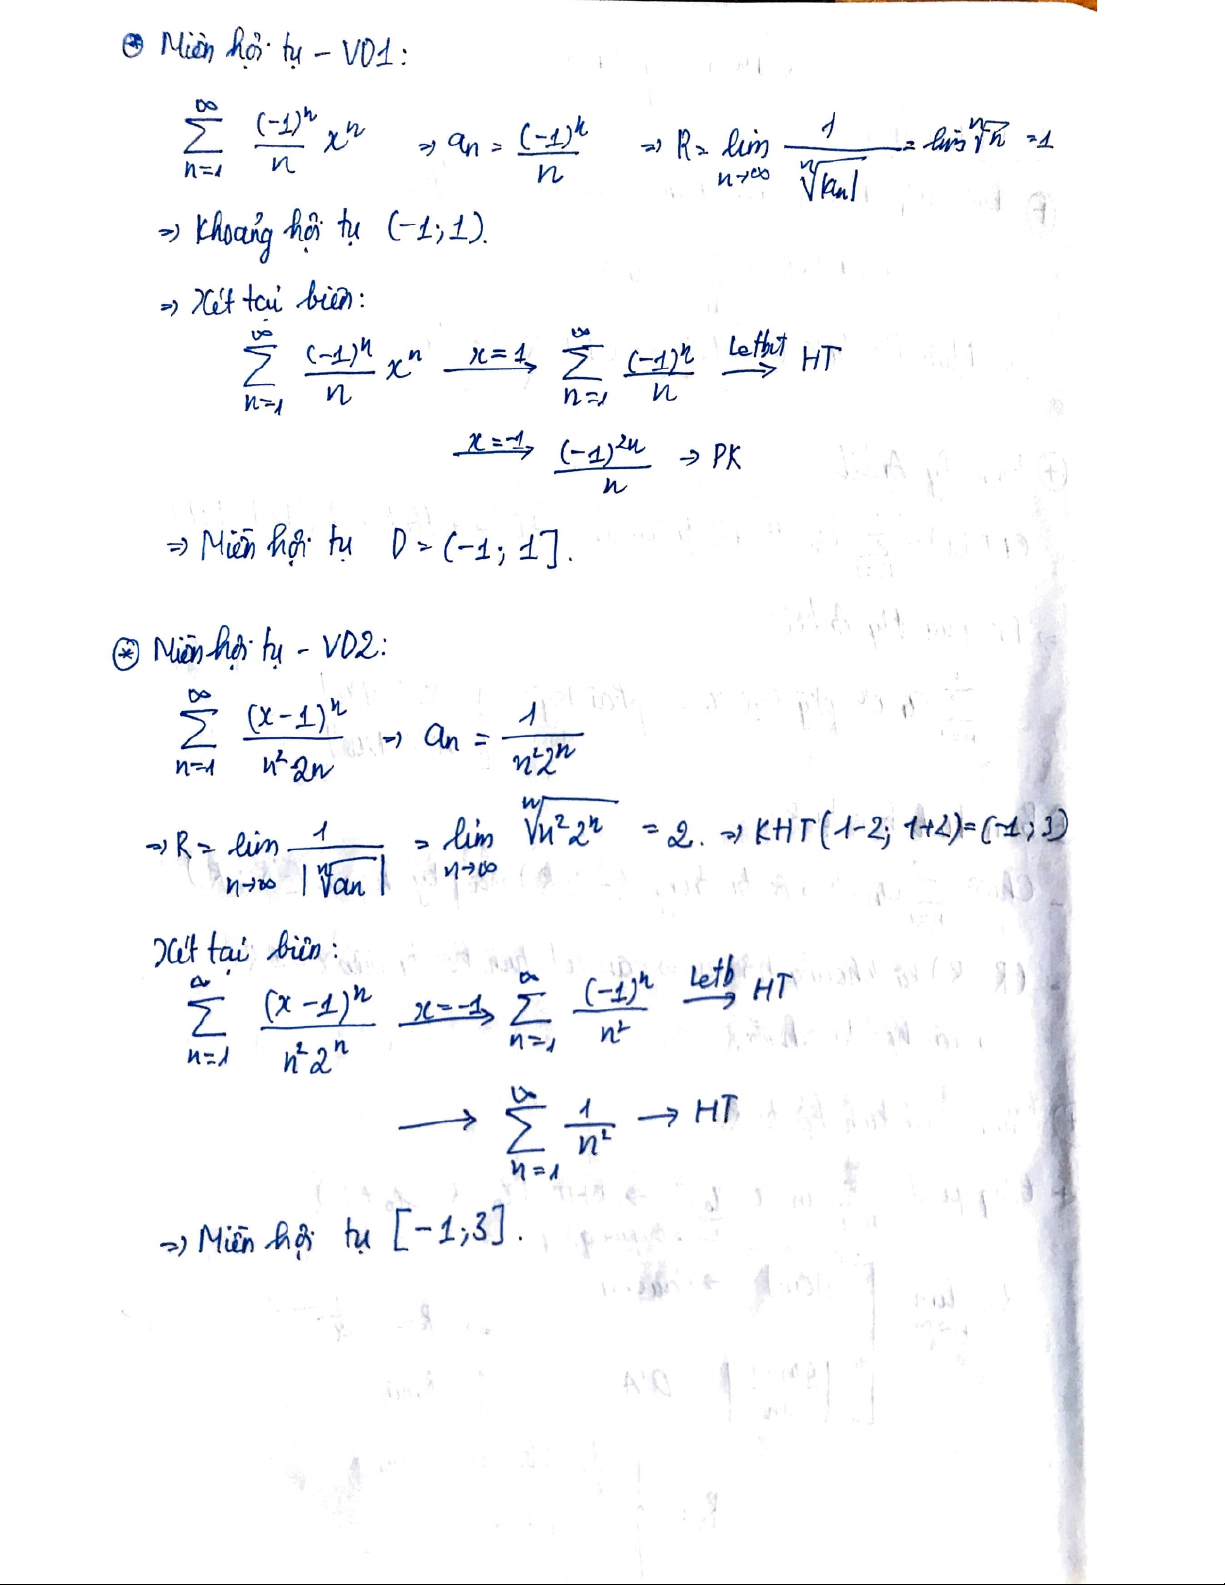 ⊛ Miền hội tụ - VD1:
∑_{n=1}^{∞} (-1)^n/n x^n ⇒ a_n = (-1)^n/n ⇒ R = lim_{n→∞} 1/ⁿ√|a_n| = lim ⁿ√n = 1
⇒ Khoảng hội tụ (-1; 1).
⇒ Xét tại biên:
∑_{n=1}^{∞} (-1)^n/n x^n —x=1→ ∑_{n=1}^{∞} (-1)^n/n —Leibnit→ HT
—x=-1→ (-1)^{2n}/n → PK
⇒ Miền hội tụ D = (-1; 1].
⊛ Miền hội tụ - VD2:
∑_{n=1}^{∞} (x-1)^n/n²2n ⇒ a_n = 1/n²2^n
⇒ R = lim_{n→∞} 1/|ⁿ√a_n| = lim_{n→∞} ⁿ√n²2^n = 2. ⇒ KHT (1-2; 1+2) = (-1; 3)
Xét tại biên:
∑_{n=1}^{∞} (x-1)^n/n²2^n —x=-1→ ∑_{n=1}^{∞} (-1)^n/n² —Leib→ HT
⟶ ∑_{n=1}^{∞} 1/n² → HT
⇒ Miền hội tụ [-1;3].